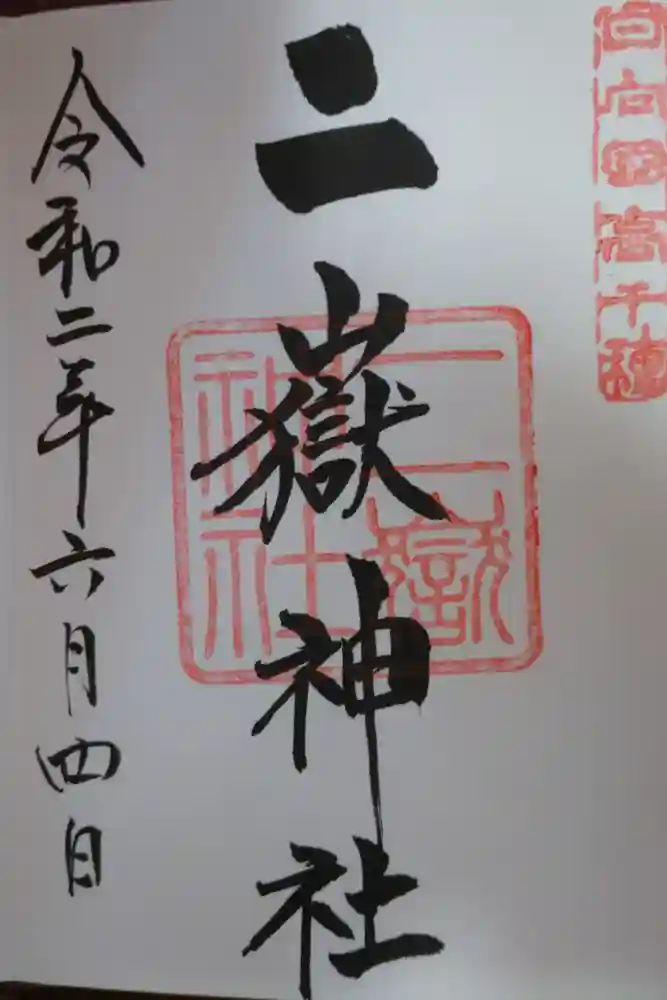 日向國高千穂
二嶽神社
二嶽
神社
令和二年六月四日